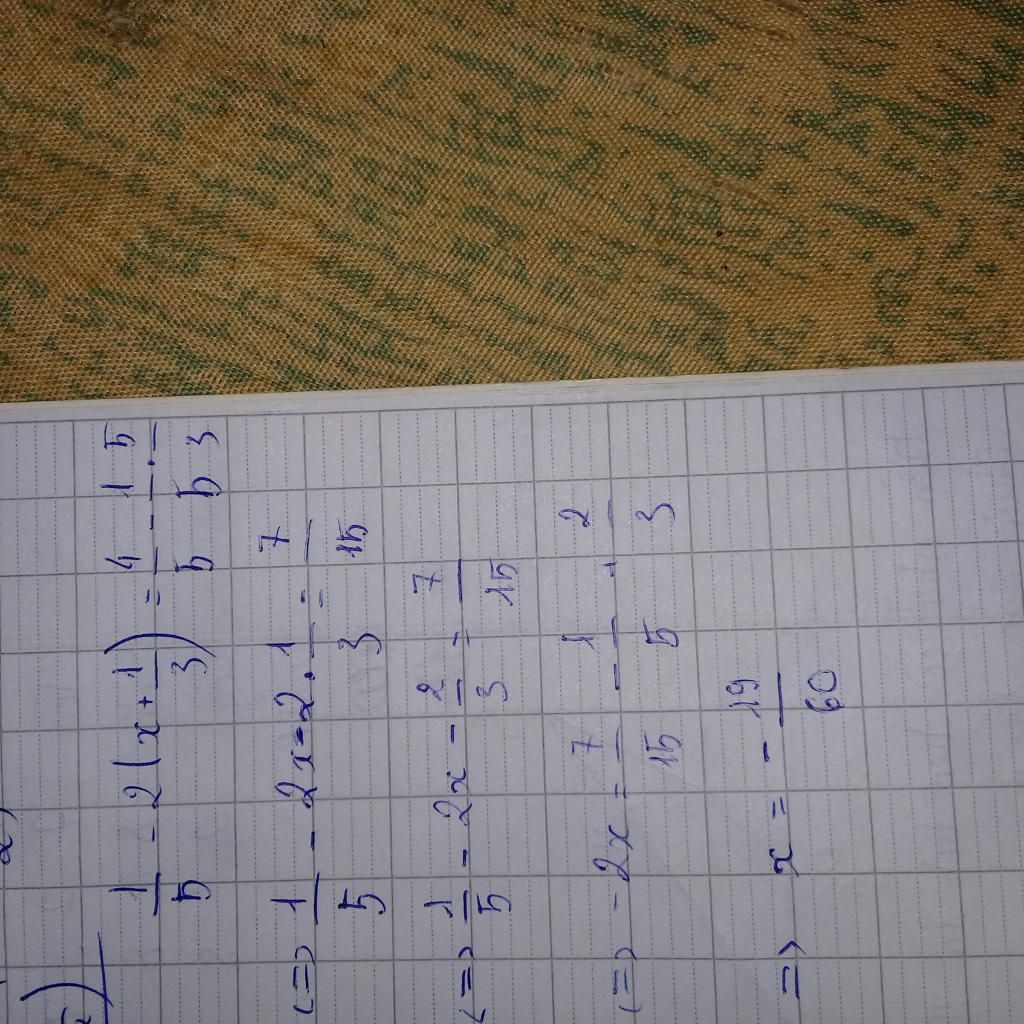 1/5 - 2(x + 1/3) = 4/5 - 1/5 . 5/3
<=> 1/5 - 2x - 2.1/3 = 7/15
<=> 1/5 - 2x - 2/3 = 7/15
<=> - 2x = 7/15 - 1/5 + 2/3
=> x = - 19/60